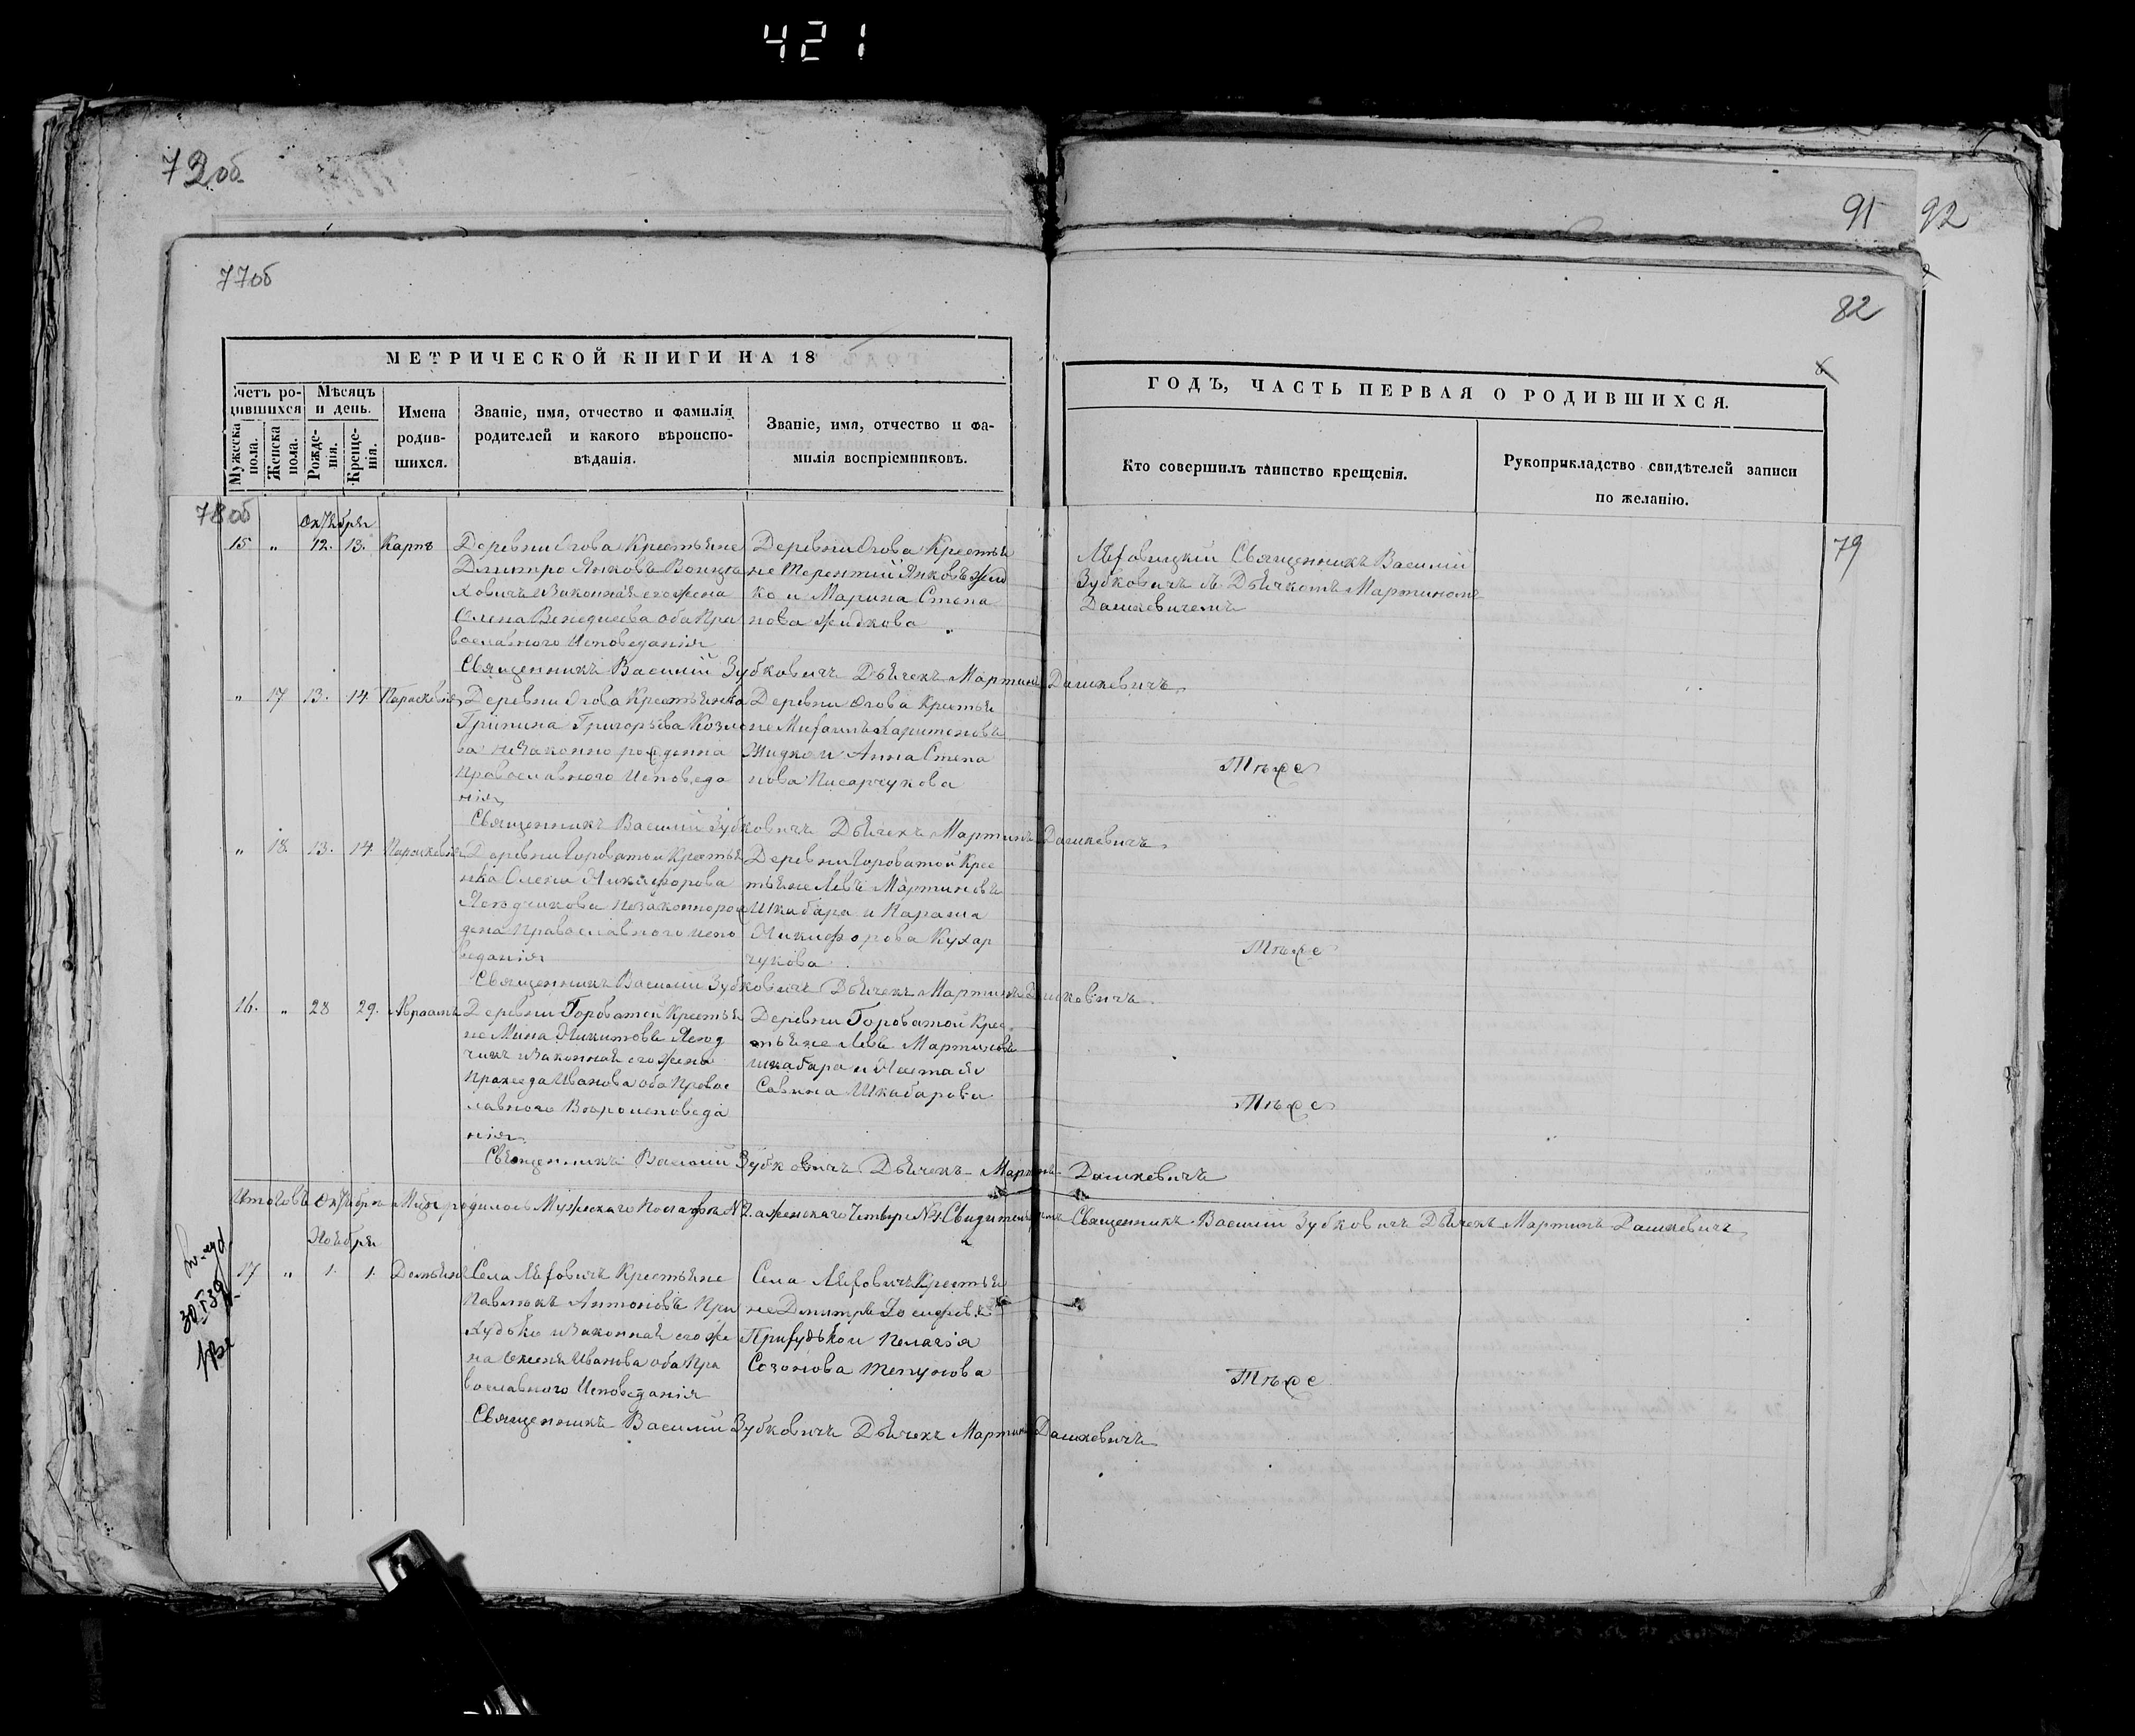 421
72об
91 92
77об
82
МЕТРИЧЕСКОЙ КНИГИ НА 18
ГОДЪ, ЧАСТЬ ПЕРВАЯ О РОДИВШИХСЯ.
Счетъ родившихся
Мѣсяцъ и день.
Мужеска пола.
Женска пола.
Рожденія.
Крещенія.
Имена
родив-
шихся.
Званіе, имя, отчество и фамилія
родителей и какого вѣроиспо-
вѣданія.
Званіе, имя, отчество и фа-
милія воспріемниковъ.
Кто совершилъ таинство крещенія.
Рукоприкладство свидѣтелей записи
по желанію.
78об
79
Октября
15 " 12. 13. Карпъ
Деревни Огова Крестьяне
Дмитро Янковъ Войцѣ
ховичъ и Законная его жена
Олена Венедиева оба Пра
вославного Исповеданія
Деревни Огова Крестья
не Терентій Янковъ Жид
ко и Марина Степа
нова Жидкова
Священникъ Василій
Зубковичъ съ Дьячкомъ Мартиномъ
Дашкевичемъ
Священникъ Василій Зубковичъ Дьячекъ Мартинъ Дашкевичъ
" 17 13. 14 Параскевія
Деревни Огова Крестьянка
Грипина Григорьева Козло
ва незаконно рожденна
Православного Исповеда
нія
Деревни Огова Крестья
не Михаилъ Харитоновъ
Жидко и Анна Степа
нова Писарчукова
Тѣже
Священникъ Василій Зубковичъ Дьячекъ Мартинъ Дашкевичъ
" 18. 13. 14 Параскевія
Деревни Гороватой Крестья
нка Олена Никифорова
незаконнорож
дена Православного испо
веданія
Деревни Гороватой Крес
тьяне Левъ Мартиновъ
Шкабара и Параска
Никифорова Кухар
чукова
Тѣже
Священникъ Василій Зубковичъ Дьячекъ Мартинъ Дашкевичъ
16. " 28 29. Авраамъ
Деревни Гороватой Крестья
не Мина Никитовъ
чикъ и Законная его жена
Пракседа Иванова оба Правос
лавного Вероисповеда
нія
Деревни Гороватой Крес
тьяне Левъ Мартиновъ
Шкабара и Настасія
Савина Шкабарова
Тѣже
Священникъ Василій Зубковичъ Дьячекъ Мартинъ Дашкевичъ
Итого въ Октябрѣ родилось Мужскаго Пола а женскаго Четыре №4 Священникъ Василій Зубковичъ Дьячекъ Мартинъ Дашкевичъ
Ноября
17 " 1. 1. Демьянъ
Села Ляховичъ Крестьяне
Павлюкъ Антоновъ При
ходько и Законная его же
на Иванова оба Пра
вославного Исповеданія
Села Ляховичъ Крестья
не Дмитръ Іосифовъ
Приходько и Пелагія
Созонова
Тѣже
Священникъ Василій Зубковичъ Дьячекъ Мартинъ Дашкевичъ